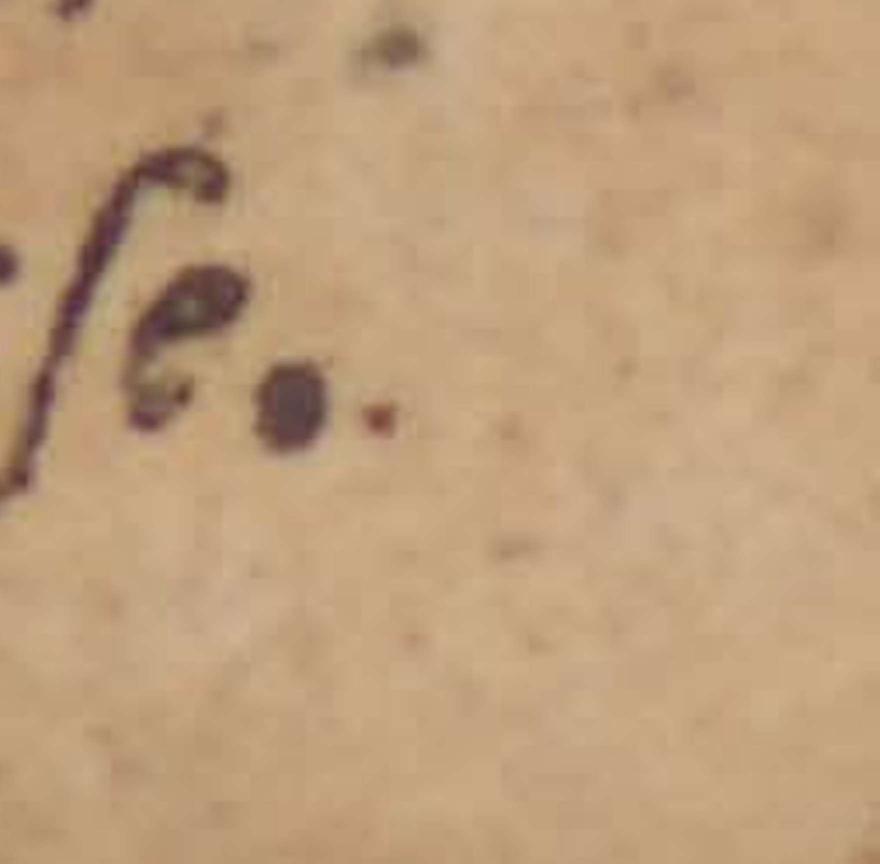 ſe.